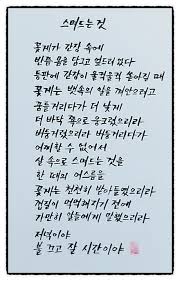 스며드는 것
꽃게가 간장 속에
반쯤 몸을 담그고 엎드려 있다
등판에 간장이 울컥울컥 쏟아질 때
꽃게는 뱃속의 알을 껴안으려고
꿈틀거리다가 더 낮게
더 바닥 쪽으로 웅크렸으리라
버둥거렸으리라 버둥거리다가
어찌할 수 없어서
살 속으로 스며드는 것을
한 때의 어스름을
꽃게는 천천히 받아들였으리라
껍질이 먹먹해지기 전에
가만히 알들에게 말했으리라
저녁이야
불 끄고 잘 시간이야